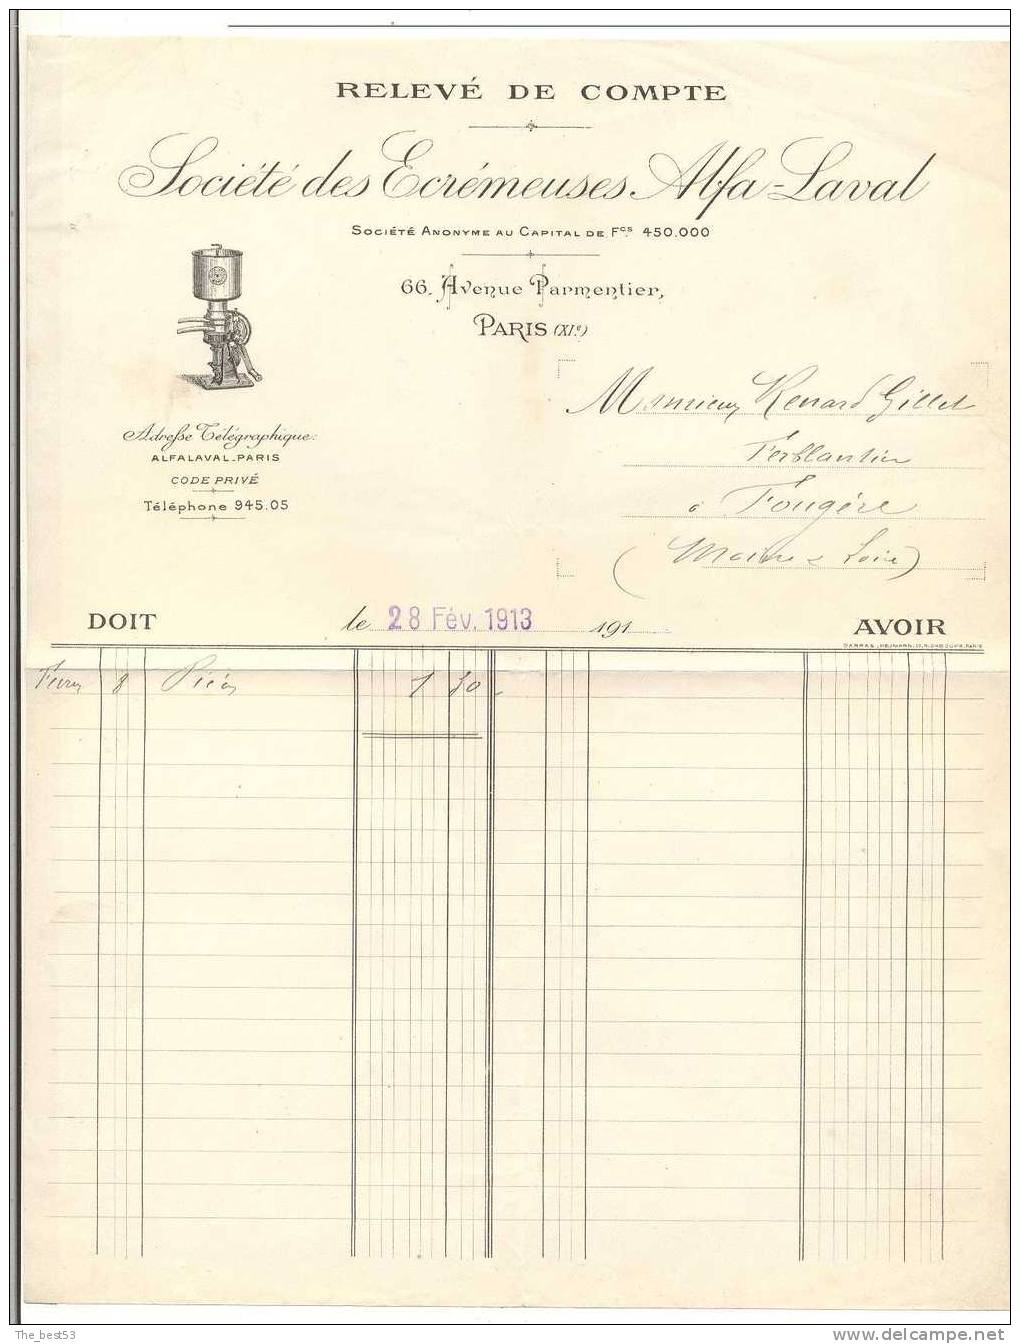 RELEVÉ DE COMPTE
Société des Ecrémeuses Alfa-Laval
SOCIÉTÉ ANONYME AU CAPITAL DE Fcs 450.000
66. Avenue Parmentier,
PARIS (XIe)
Monsieur Renard Gillet
Ferblantier
à Fougéré
(Maine & Loire)
Adresse Télégraphique:
ALFALAVAL-PARIS
CODE PRIVÉ
Téléphone 945.05
DOIT le 28 Fév. 1913 191 AVOIR
8 1 30
The_best53
delcampe.net